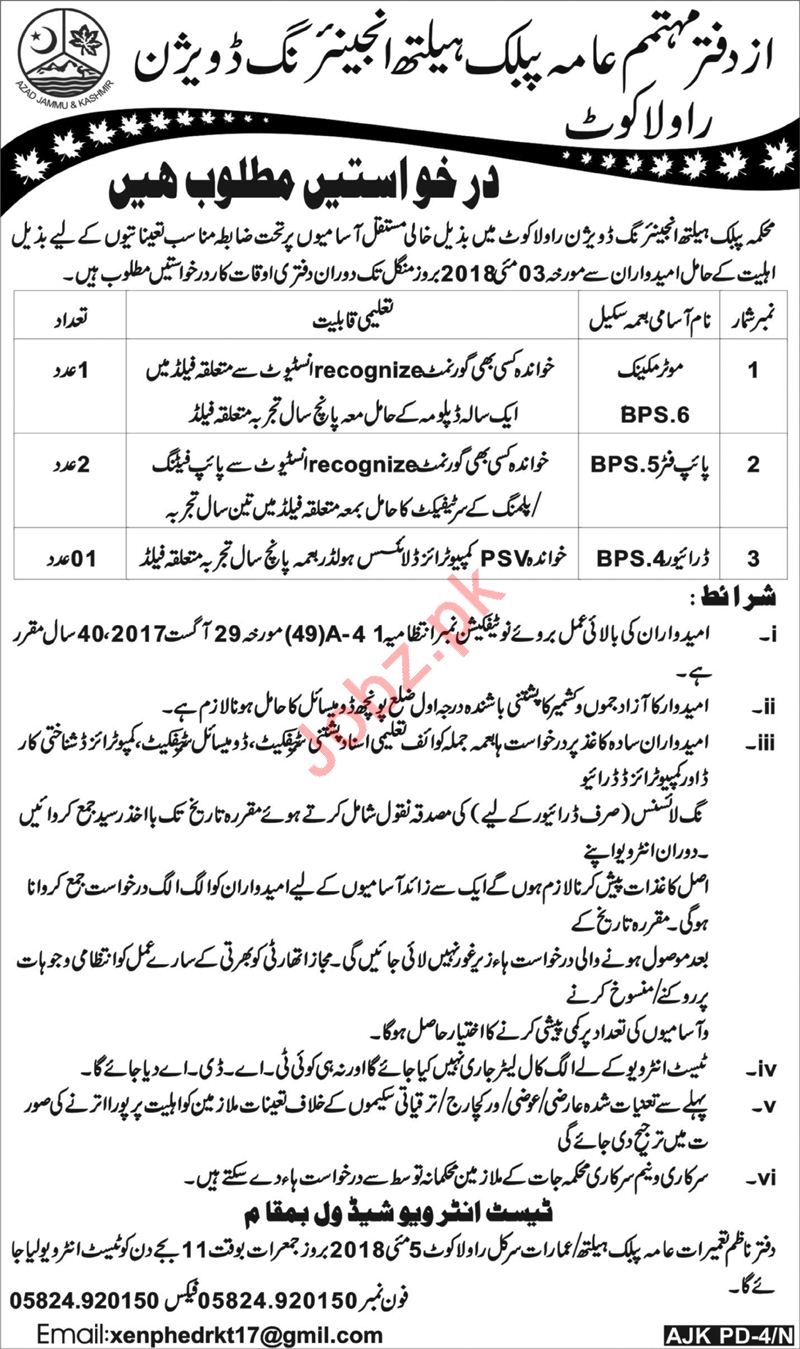 از دفتر مہتمم عامہ پبلک ہیلتھ انجینئرنگ ڈویژن
راولاکوٹ
AZAD JAMMU & KASHMIR
درخواستیں مطلوب ھیں
محکمہ پبلک ہیلتھ انجینئرنگ ڈویژن راولاکوٹ میں بذیل خالی مستقل آسامیوں پر تحت ضابطہ مناسب تعیناتیوں کے لیے بذیل
اہلیت کے حامل امیدواران سے مورخہ 03 مئی 2018 بروز منگل تک دوران دفتری اوقات کار درخواستیں مطلوب ہیں۔
نمبر شمار نام آسامی بمعہ سکیل تعلیمی قابلیت تعداد
1 موٹر مکینک خواندہ کسی بھی گورنمنٹ recognize انسٹیوٹ سے متعلقہ فیلڈ میں 1 عدد
BPS.6 ایک سالہ ڈپلومہ کے حامل معہ پانچ سال تجربہ متعلقہ فیلڈ
2 پائپ فٹر BPS.5 خواندہ کسی بھی گورنمنٹ recognize انسٹیوٹ سے پائپ فیٹنگ 2 عدد
/پلمنگ کے سرٹیفکیٹ کا حامل بمعہ متعلقہ فیلڈ میں تین سال تجربہ
3 ڈرائیور BPS.4 خواندہ PSV کمپیوٹرائزڈ لائسنس ہولڈر بعمہ پانچ سال تجربہ متعلقہ فیلڈ 01 عدد
شرائط :
i۔ امیدواران کی بالائی عمل بروئے نوٹیفکیشن نمبر انتظامیہ A-4 1(49) مورخہ 29 آگست 2017، 40 سال مقرر
ہے۔
ii۔ امیدوار کا آزاد جموں و کشمیر کا پشتنی باشندہ درجہ اول ضلع پونچھ ڈومیسائل کا حامل ہونا لازم ہے۔
iii۔ امیدواران سادہ کاغذ پر درخواست ہا بعمہ جملہ کوائف تعلیمی اسناد پشتنی سٹیفکیٹ، ڈومیسائل سٹیفکیٹ، کمپوٹرائزڈ شناختی کار
ڈ اور کمپیوٹرائزڈ ڈرائیو
نگ لائسنس (صرف ڈرائیور کے لیے) کی مصدقہ نقول شامل کرتے ہوئے مقررہ تاریخ تک بااخذ رسید جمع کروائیں
۔ دوران انٹرویو اپنے
اصل کاغذات پیش کرنا لازم ہوں گے ایک سے زائد آسامیوں کے لیے امیدواران کو الگ الگ درخواست جمع کروانا
ہوگی۔ مقررہ تاریخ کے
بعد موصول ہونے والی درخواست ہاء زیر غور نہیں لائی جائیں گی۔ مجاز اتھارٹی کو بھرتی کے سارے عمل کو انتظامی وجوہات
پر روکنے/منسوخ کرنے
و آسامیوں کی تعداد پر کمی پیشی کرنے کا اختیار حاصل ہوگا۔
iv۔ ٹیسٹ انٹرویو کے لے الگ کال لیٹر جاری نہیں کیا جائے گا اور نہ ہی کوئی ٹی۔اے۔ڈی۔اے دیا جائے گا۔
v۔ پہلے سے تعنیات شدہ عارضی/عوضی/ورکچارج/ترقیاتی سکیموں کے خلاف تعینات ملازمین کو اہلیت پر پورا اترنے کی صور
ت میں ترجیح دی جائے گی
vi۔ سرکاری و نیم سرکاری محکمہ جات کے ملازمین محکمانہ توسط سے درخواست ہاء دے سکتے ہیں۔
ٹیسٹ انٹرویو شیڈول بمقام
دفتر ناظم تعمیرات عامہ پبلک ہیلتھ/عمارات سرکل راولاکوٹ 5 مئی 2018 بروز جمعرات بوقت 11 بجے دن کو ٹیسٹ انٹرویو لیا جا
ئے گا۔
فون نمبر 05824.920150 فیکس 05824.920150
Email:xenphedrkt17@gmil.com
AJK PD-4/N
Jobz.pk